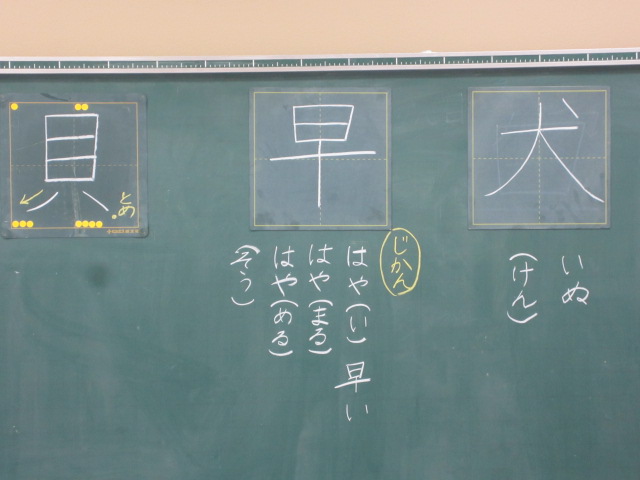 犬
いぬ
(けん)
早
じかん
はや(い) 早い
はや(まる)
はや(める)
(そう)
貝
とめ